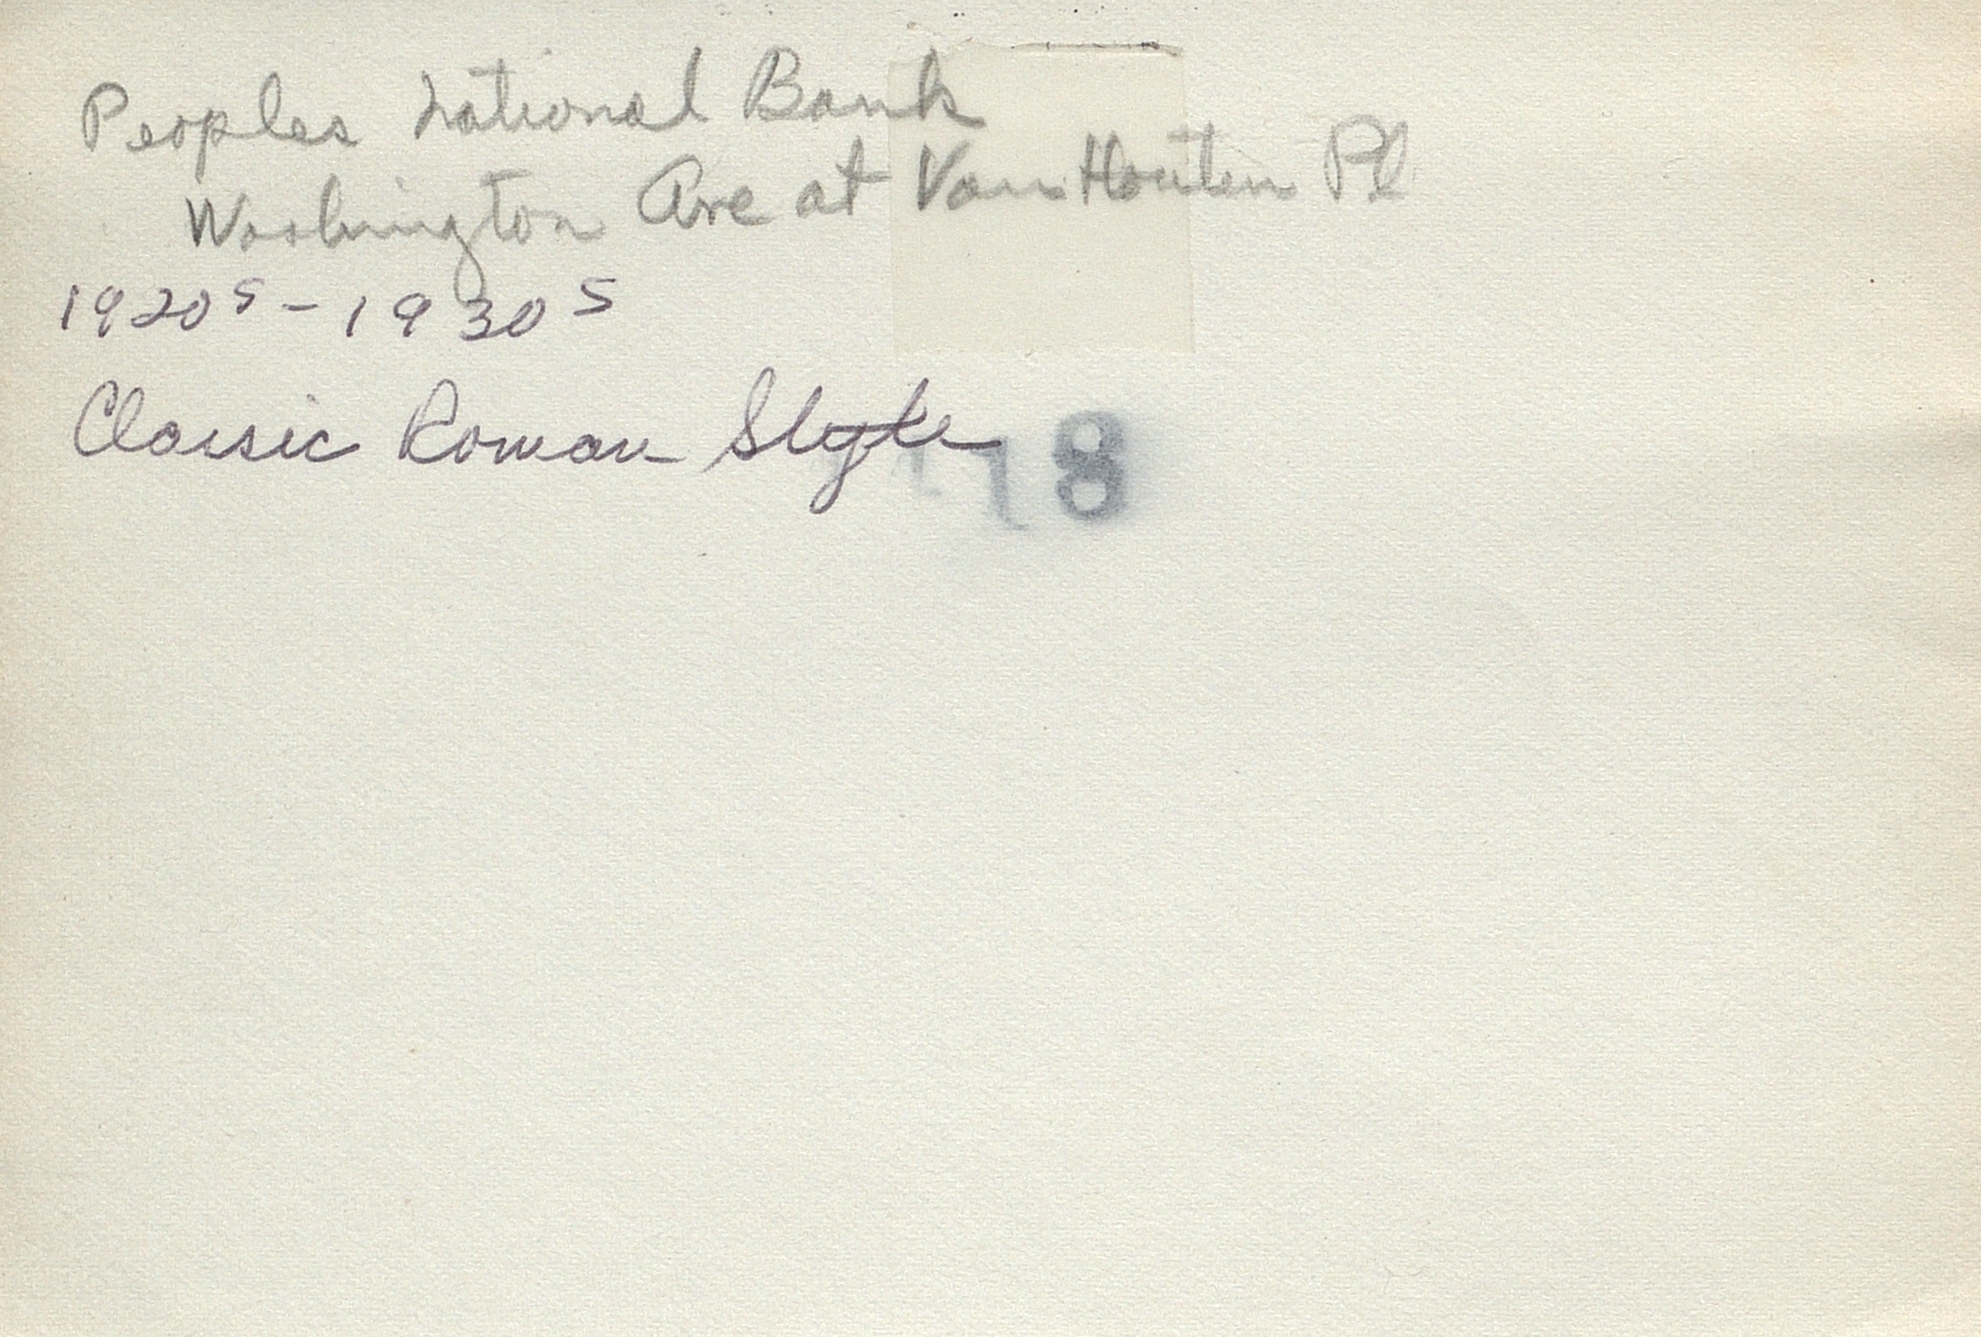 Peoples National Bank
Washington Ave at Van Houten Pl
1920s - 1930s
Classic Roman Style
118